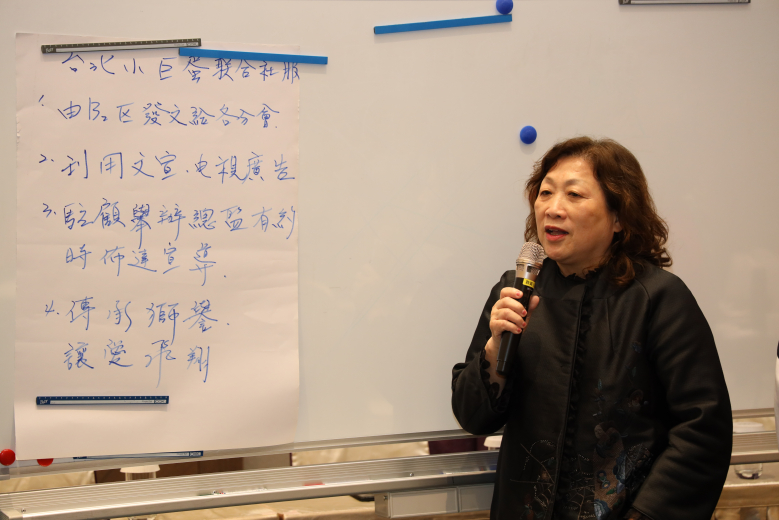 台北小巨蛋联合社服
1. 由B2区發文給各分會.
2. 利用文宣.电視廣告
3. 駐顧舉辦總監有約
時佈達宣導.
4. 傳承獅譽.
讓愛飛翔